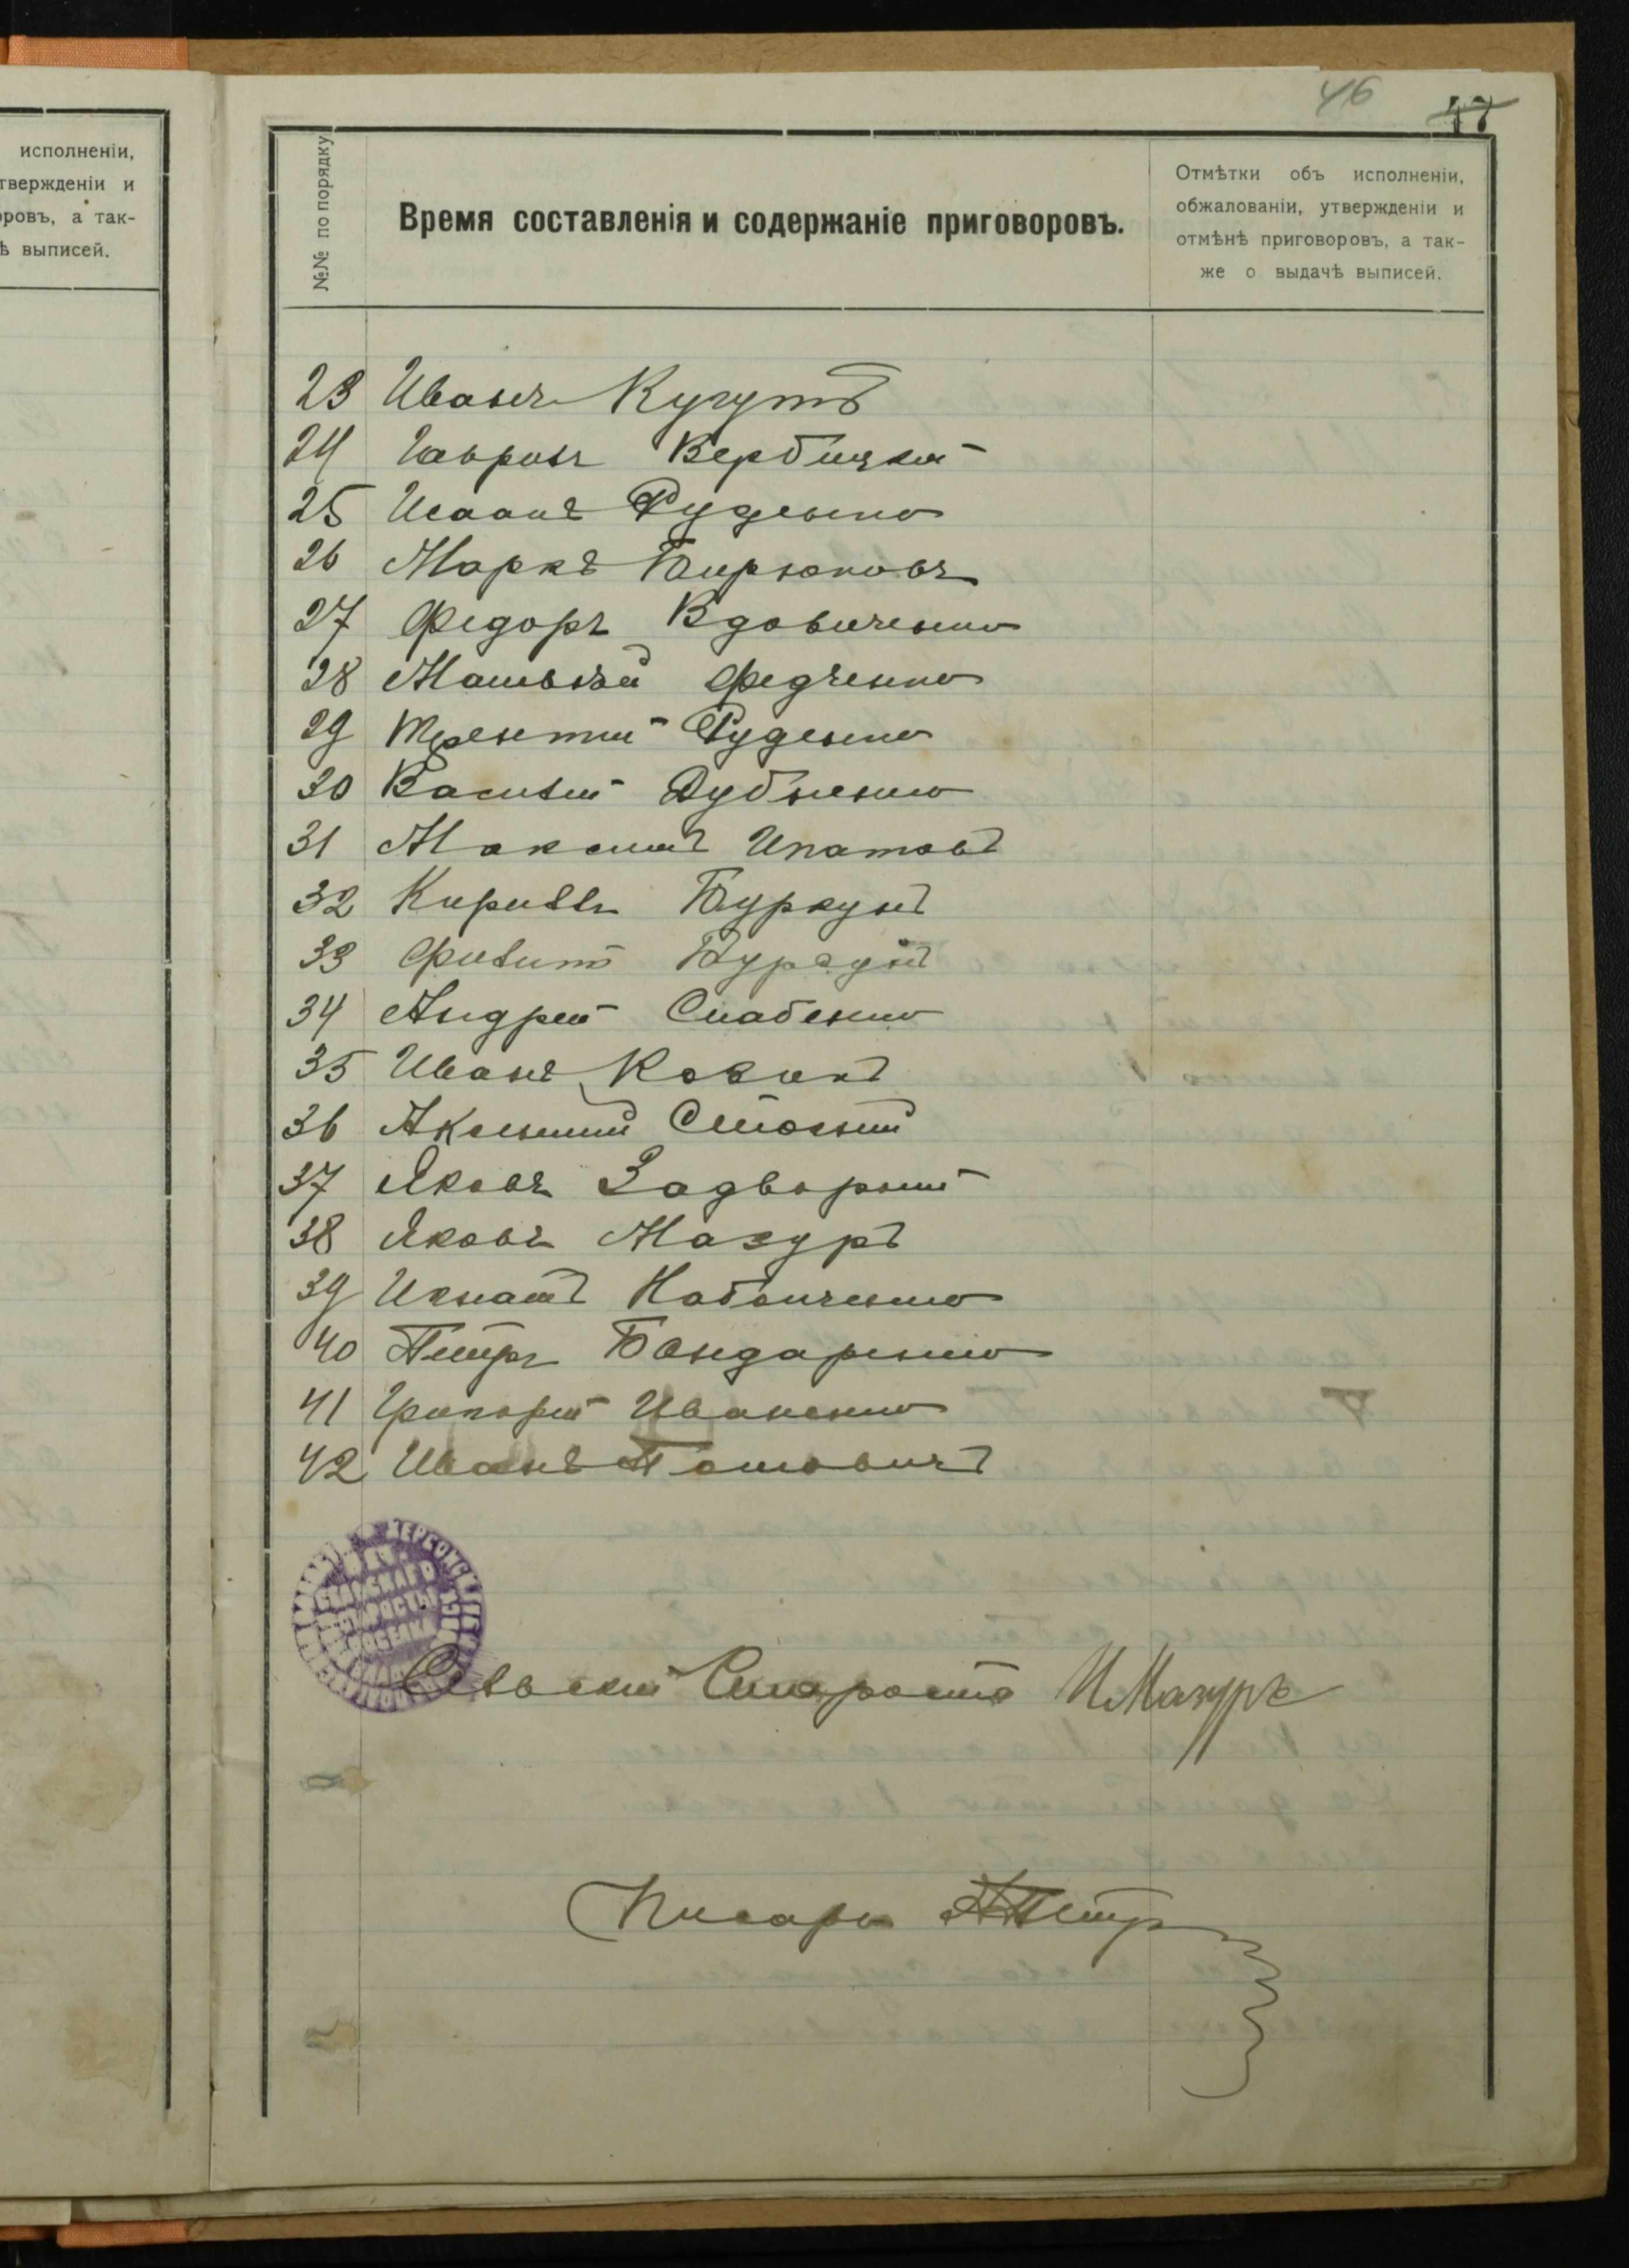 исполненіи,
твержденіи и
оровъ, а так-
ѣ выписей.
46 47
№№ по порядку
Время составленія и содержаніе приговоровъ.
Отмѣтки объ исполненіи,
обжалованіи, утвержденіи и
отмѣнѣ приговоровъ, а так-
же о выдачѣ выписей.
23 Иванъ Кугутъ
24 Гаврилъ Вербицкій
25 Исаакъ Руденко
26 Маркъ Бирюковъ
27 Федоръ Вдовиченко
28 Матвѣй Федченко
29 Терентій Руденко
30 Василій
31 Максимъ Ипатовъ
32 Кириллъ Буркунъ
33 Филипъ Буркунъ
34 Андрей Слабенко
35 Иванъ Козакъ
36 Аксентий
37 Яковъ Задворный
38 Яковъ Мазуръ
39 Игнатъ
40 Петръ Бондаренко
41 Григорій Иваненко
42 Иванъ
ХЕРСОНСК
СЕЛЬСКАГО
СТАРОСТЫ
ПОСЕЛКА
Сельскій Староста И Мазуръ
Писарь